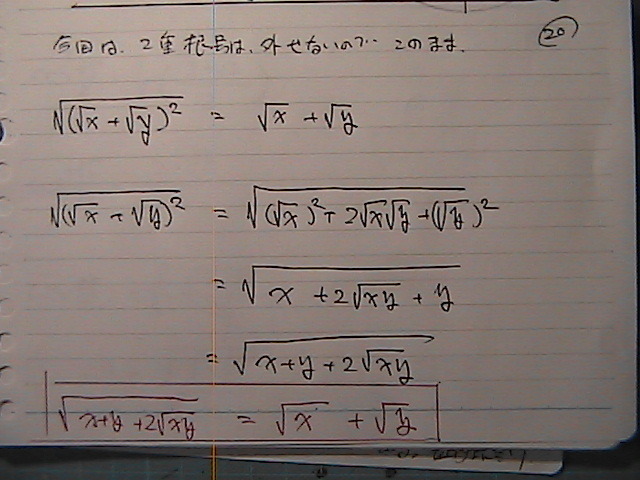 今回は、2重根号は、外せないので このまま。
20
√(√x + √y)² = √x + √y
√(√x + √y)² = √(√x)² + 2√x√y + (√y)²
= √x + 2√xy + y
= √x + y + 2√xy
√x+y + 2√xy = √x + √y